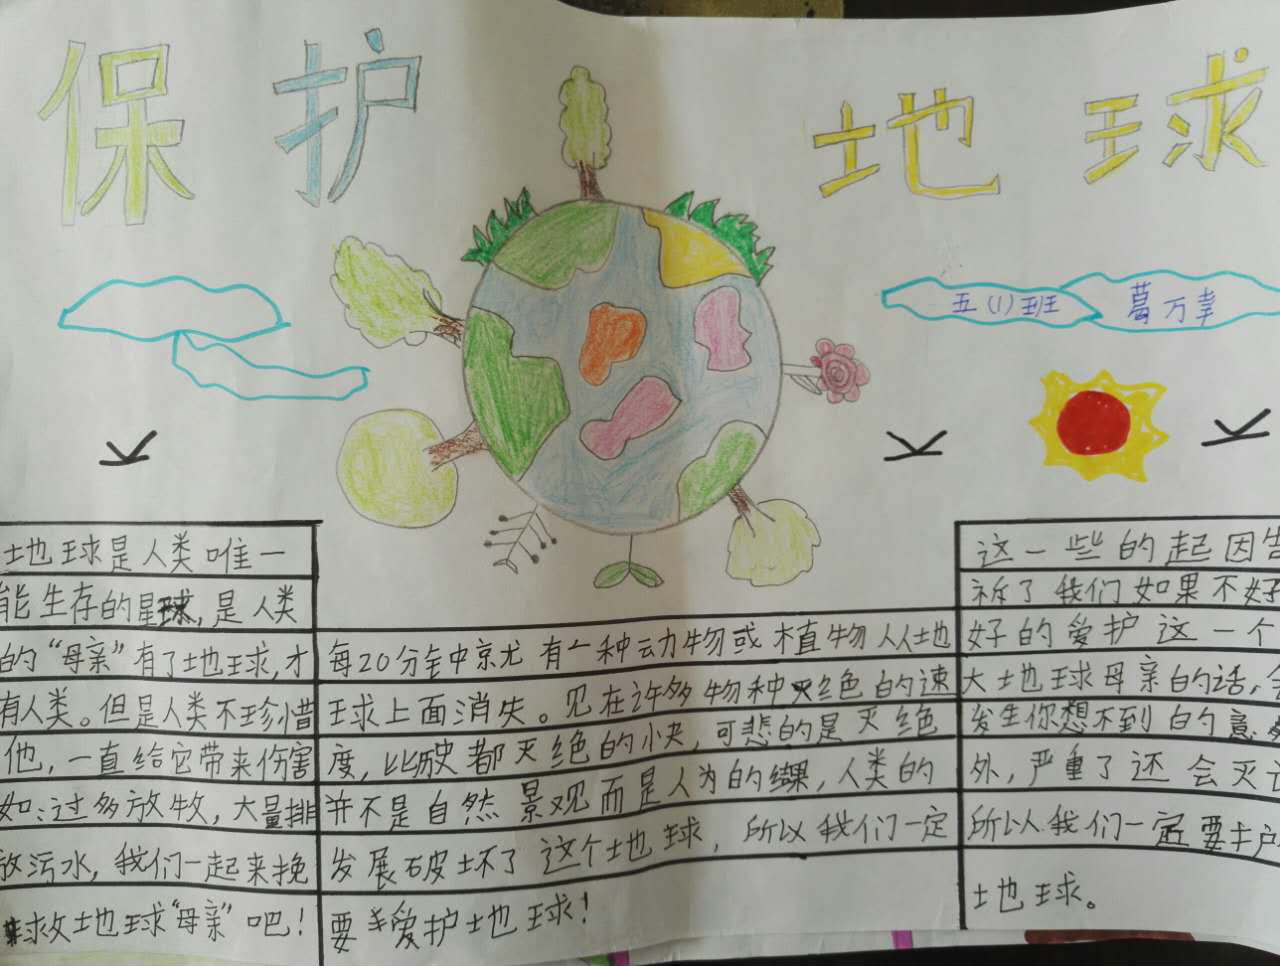 保护地球
五（1）班 葛万幸
地球是人类唯一
能生存的星球,是人类
的“母亲”有了地球,才
有人类。但是人类不珍惜
他,一直给它带来伤害
如:过多放牧,大量排
放污水,我们一起来挽
救地球“母亲”吧!
每20分钟中京尤有一种动物或植物从地
球上面消失。见在许多物种灭绝色的速
度,比历史都灭绝的快,可悲的是灭绝
并不是自然景观而是人为的结果,人类的
发展破坏了这个地球,所以我们一定
要爱护地球!
这一些的起因告
诉了我们如果不好
好的爱护这一个
大地球母亲的话,会
发生你想不到的意
外,严重了还会灭
所以我们一定要
地球。